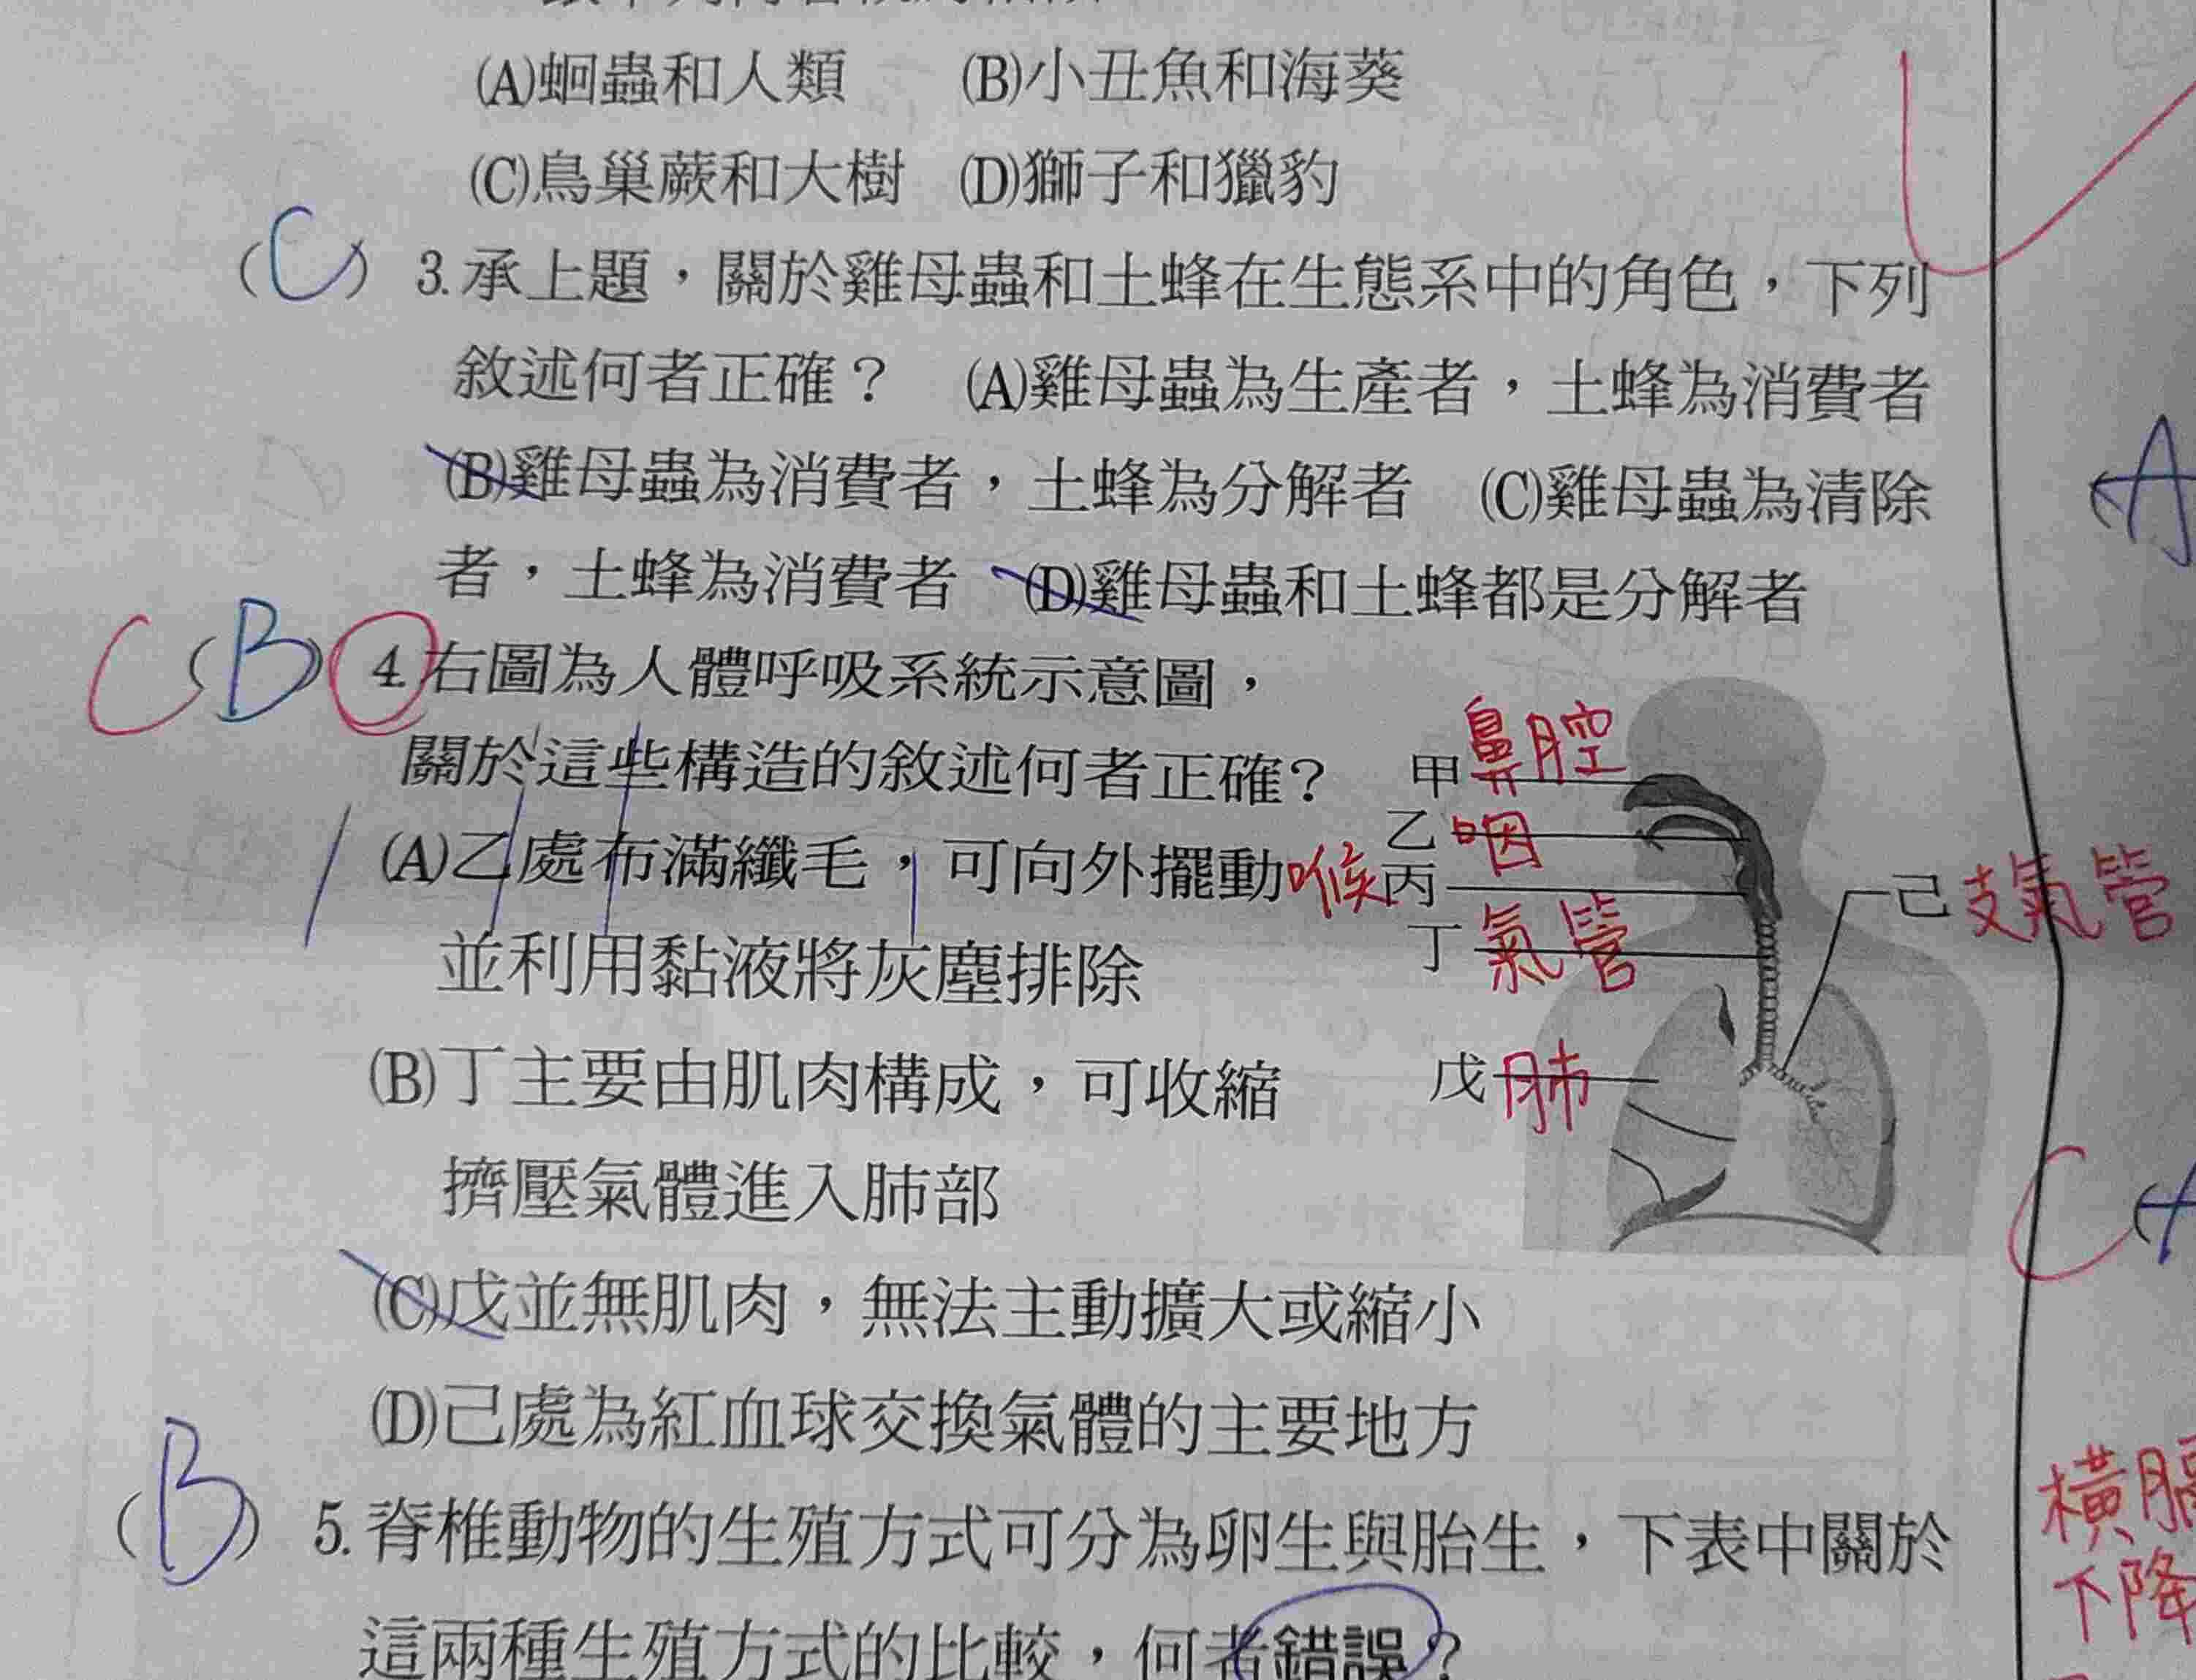 (A)蛔蟲和人類 (B)小丑魚和海葵
(C)鳥巢蕨和大樹 (D)獅子和獵豹
(C) 3.承上題，關於雞母蟲和土蜂在生態系中的角色，下列
敘述何者正確？ (A)雞母蟲為生產者，土蜂為消費者
(B)雞母蟲為消費者，土蜂為分解者 (C)雞母蟲為清除
者，土蜂為消費者 (D)雞母蟲和土蜂都是分解者
C(B) 4.右圖為人體呼吸系統示意圖，
關於這些構造的敘述何者正確?
(A)乙處布滿纖毛，可向外擺動
並利用黏液將灰塵排除
(B)丁主要由肌肉構成，可收縮
擠壓氣體進入肺部
(C)戊並無肌肉，無法主動擴大或縮小
(D)己處為紅血球交換氣體的主要地方
甲 鼻腔
乙 咽
喉 丙
丁 氣管
戊 肺
己 支氣管
(B) 5.脊椎動物的生殖方式可分為卵生與胎生，下表中關於
這兩種生殖方式的比較，何者錯誤？
(A
C(A
橫膈
下降